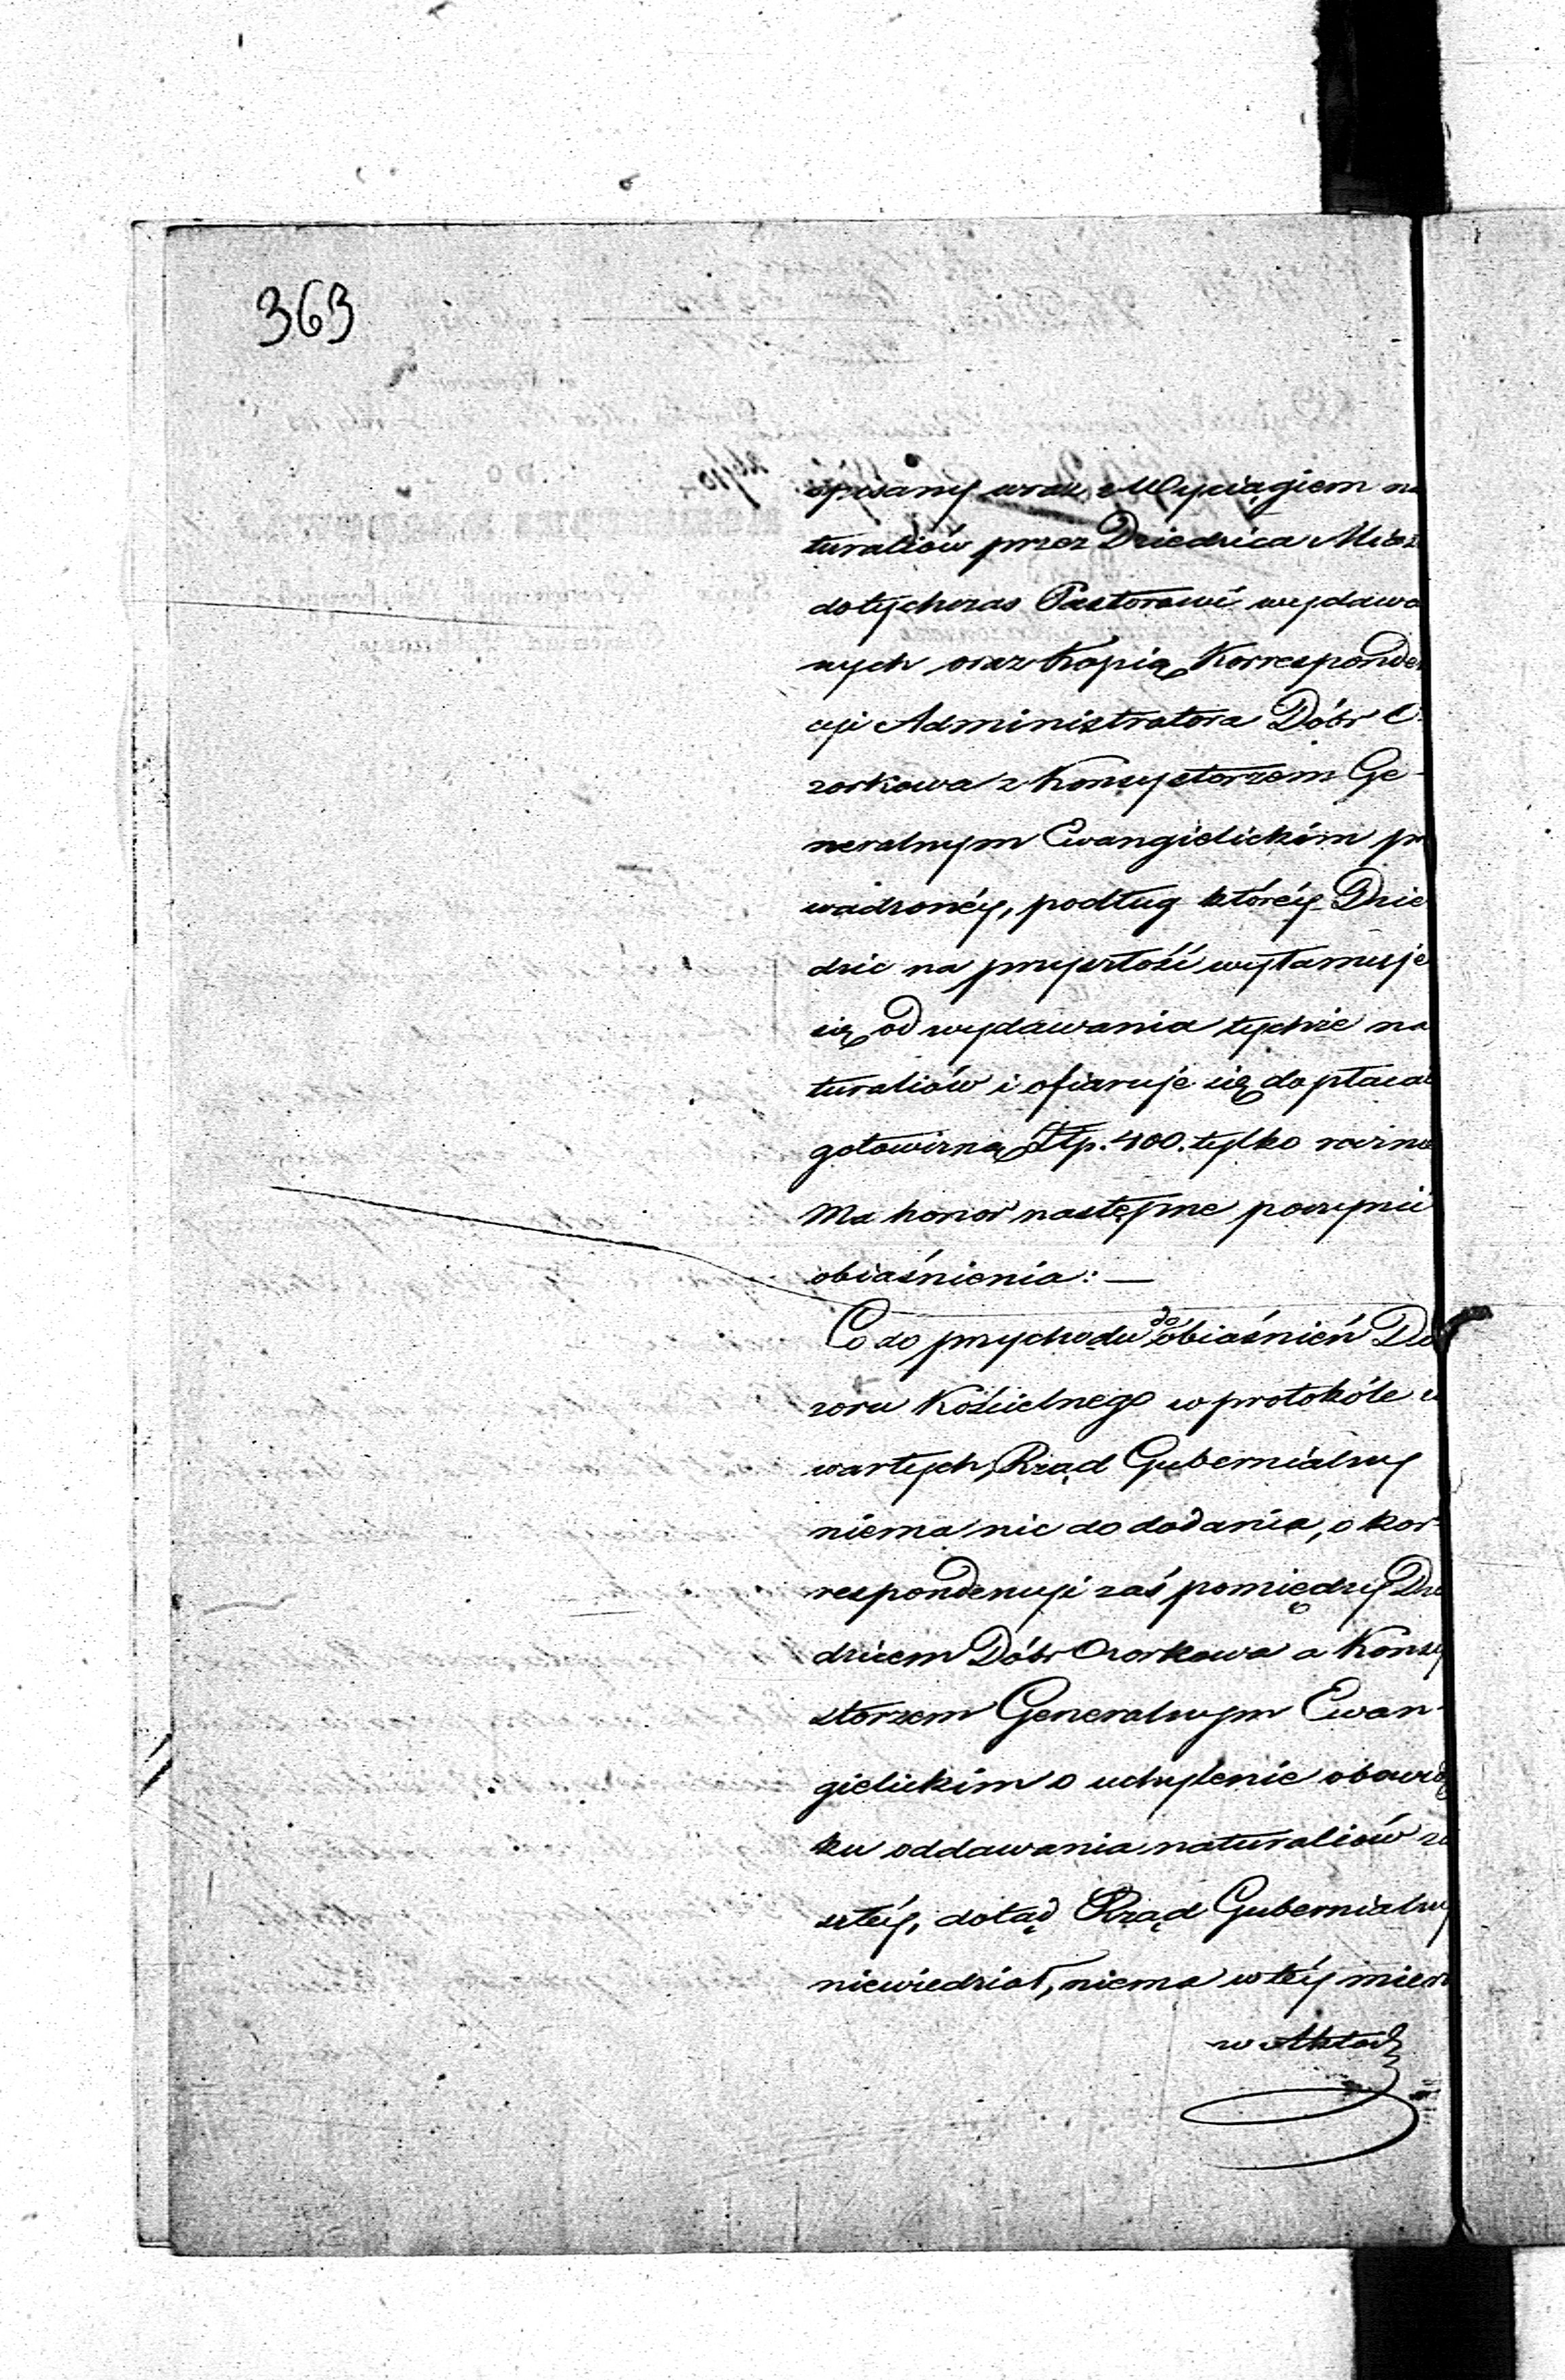 363
opisany wraz z Wyciągiem na
turaliów przez Dziedzica Mias
dotychczas Pastorowi wydawa
nych oraz Kopią Korresponden
cyi Administratora Dóbr O
zorkowa z Konsystorzem Ge-
neralnym Ewangielickim pr
wadzonéy, podług któréy Dzie
dzic na przyszłość wyłamuje
się od wydawania tychże na
turaliów i ofiaruje się dopłacać
gotowizną Złp. 400. tylko roczn
Ma honor następne poczynić
obiaśnienia: —
Co do przychodu do obiaśnień Do
zoru Kościelnego w protokóle z
wartych, Rząd Gubernialny
niema nic do dodania, o kor-
respondencyi zaś pomiędzy Dzie
dzicem Dóbr Ozorkowa a Konsy
storzem Generalnym Ewan-
gielickim o uchylenie obowią
zku oddawania naturaliów za
szłéy, dotąd Rząd Gubernialny
niewiedział, niema w téy mierz
w Aktach